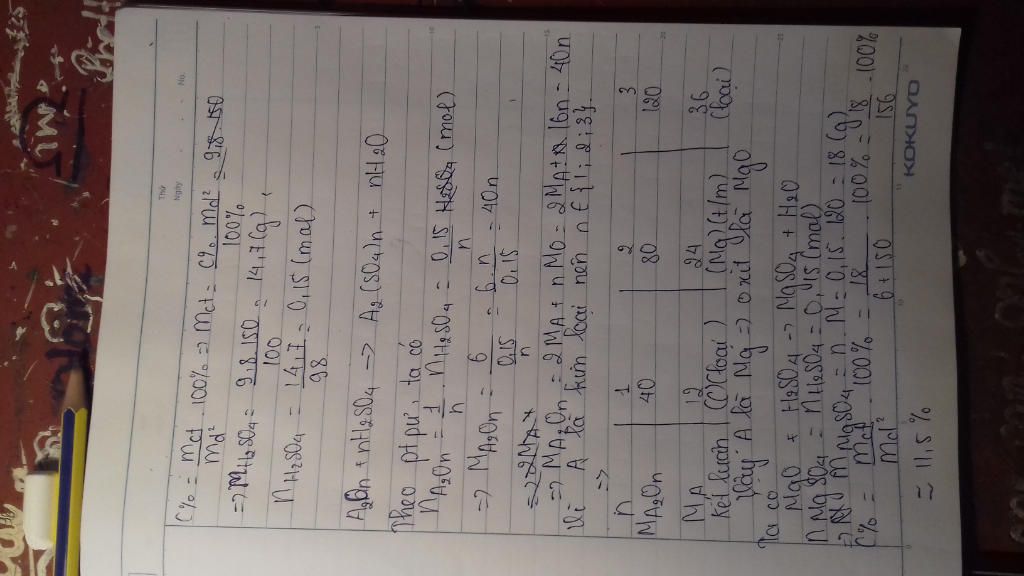 Thứ
Ngày
No.
C% = mct/mdd . 100% => mct = C% . mdd / 100% = 9,8 . 150
=> mH2SO4 = 9,8 . 150 / 100 = 14,7 (g)
nH2SO4 = 14,7 / 98 = 0,15 (mol)
A2On + nH2SO4 -> A2(SO4)n + nH2O
Theo ptpư, ta có
nA2On = 1/n . nH2SO4 = 0,15/n (mol)
=> MA2On = 6 / (0,15/n) = 6.n / 0,15 = 40n
Vì => MA2On = 2MA + n MO = 2MA + 16n = 40n
A là kim loại nên n ∈ {1; 2; 3}
=>
n | 1 | 2 | 3
MA2On | 40 | 80 | 120
MA | 12 | 24 | 36
Kết luận | (C)(loại) | (Mg)(t/m) | (loại)
Vậy A là Mg => oxit là MgO
Ta có
MgO + H2SO4 -> MgSO4 + H2O
nMgSO4 = nH2SO4 = 0,15 (mol)
=> mMgSO4 = n . M = 0,15 . 120 = 18 (g)
C% = mct/mdd . 100% = 18/(6+150) . 100% = 18/156 . 100%
≈ 11,5 %
KOKUYO